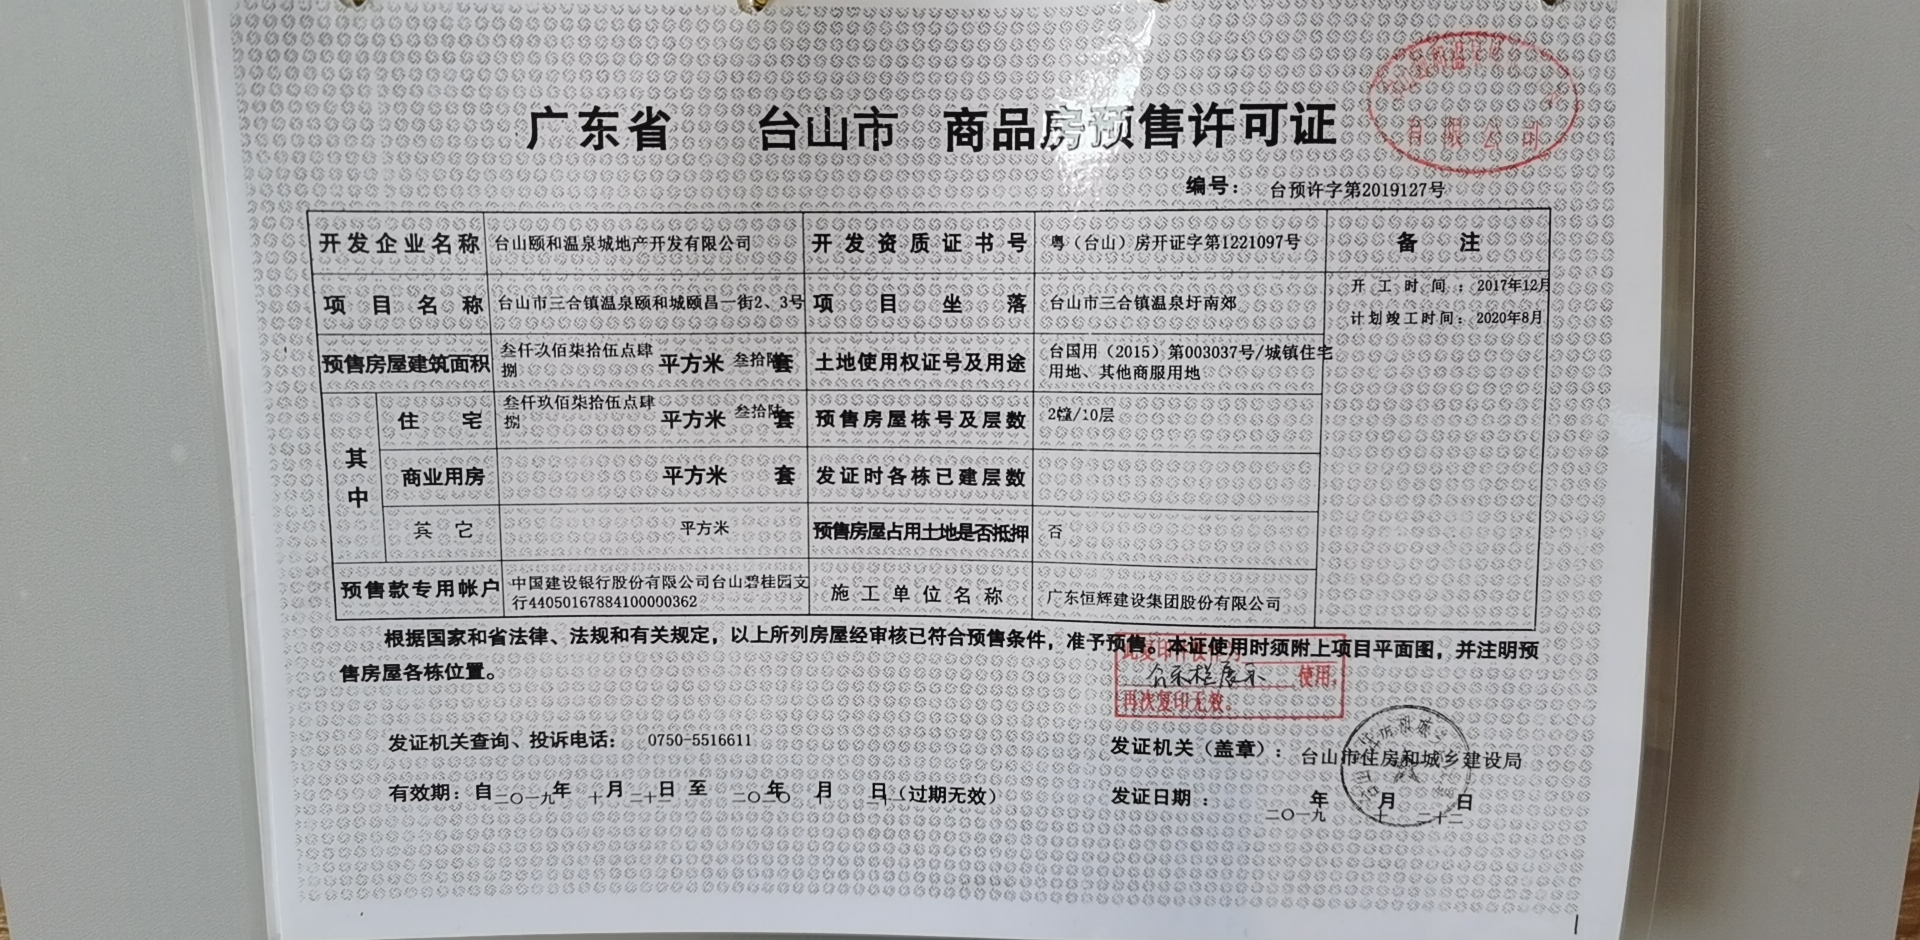 广东省 台山市 商品房预售许可证
有限公司
编号： 台预许字第2019127号
开发企业名称 台山颐和温泉城地产开发有限公司 开发资质证书号 粤（台山）房开证字第1221097号 备注
项目名称 台山市三合镇温泉颐和城颐昌一街2、3号 项目坐落 台山市三合镇温泉圩南郊
开工时间：2017年12月
计划竣工时间：2020年8月
预售房屋建筑面积 叁仟玖佰柒拾伍点肆捌 平方米 叁拾陆套 土地使用权证号及用途 台国用（2015）第003037号/城镇住宅
用地、其他商服用地
其中 住宅 叁仟玖佰柒拾伍点肆捌 平方米 叁拾陆套 预售房屋栋号及层数 2幢/10层
商业用房 平方米 套 发证时各栋已建层数
其它 平方米 预售房屋占用土地是否抵押 否
预售款专用帐户 中国建设银行股份有限公司台山碧桂园支
行44050167884100000362 施工单位名称 广东恒辉建设集团股份有限公司
根据国家和省法律、法规和有关规定，以上所列房屋经审核已符合预售条件，准予预售。本证使用时须附上项目平面图，并注明预
售房屋各栋位置。
公示栏展示 使用，
再次复印无效。
发证机关查询、投诉电话： 0750-5516611
发证机关（盖章）： 台山市住房和城乡建设局
有效期：自二〇一九年十月二十二日 至 二〇二〇年 月 日（过期无效）
发证日期： 二〇一九年十月二十二日